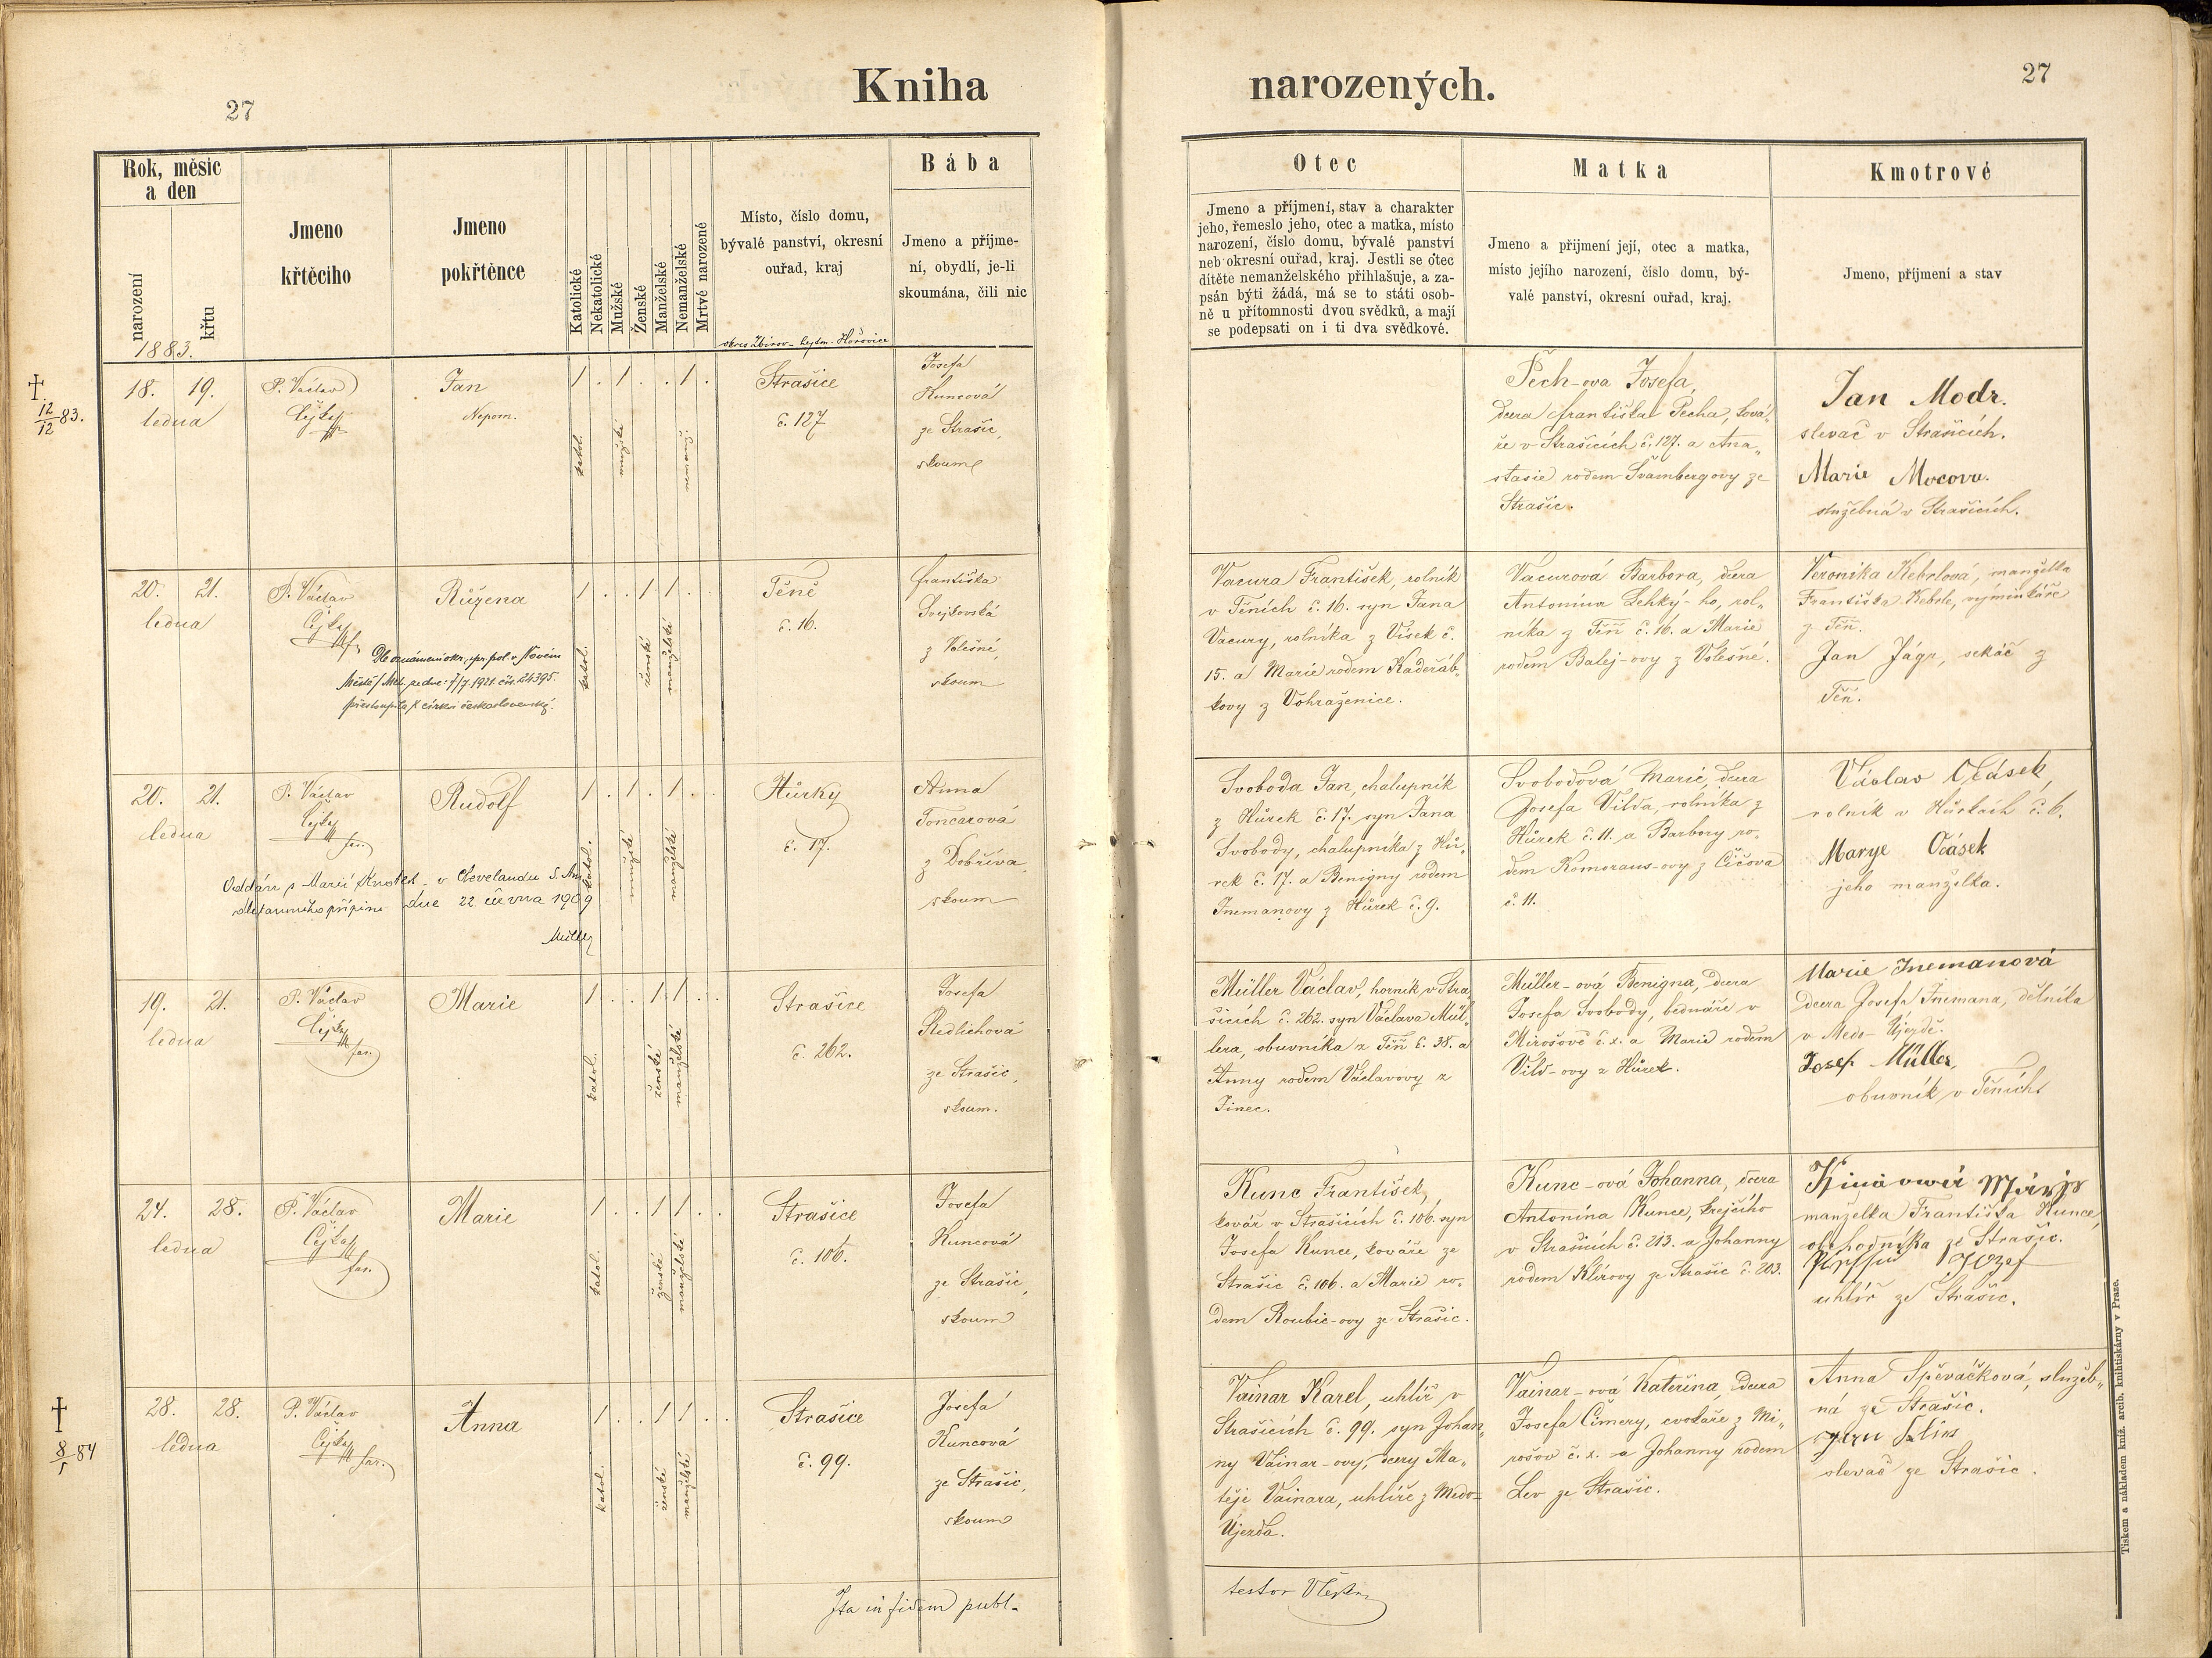 Kniha
narozených.
27
27
Rok, měsíc
a den
narození
křtu
1883.
Jmeno
křtěcího
Jmeno
pokřtěnce
Katolické
Nekatolické
Mužské
Ženské
Manželské
Nemanželské
Mrtvé narozené
Místo, číslo domu,
bývalé panství, okresní
ouřad, kraj
okres Zbirov - hejtm. Hořovice
Bába
Jmeno a příjme-
ní, obydlí, je-li
skoumána, čili nic
Otec
Jmeno a příjmení, stav a charakter
jeho, řemeslo jeho, otec a matka, místo
narození, číslo domu, bývalé panství
neb okresní ouřad, kraj. Jestli se otec
dítěte nemanželského přihlašuje, a za-
psán býti žádá, má se to státi osob-
ně u přítomnosti dvou svědků, a mají
se podepsati on i ti dva svědkové.
Matka
Jmeno a přijmení její, otec a matka,
místo jejího narození, číslo domu, bý-
valé panství, okresní ouřad, kraj.
Kmotrové
Jmeno, příjmení a stav
†
12/12 83.
18. 19.
ledna
P. Václav
Čejka
Jan
Nepom.
1 . 1 . . 1 .
katol.
mužské
nemanž.
Strašice
č. 127
Josefa
Kuncová
ze Strašic,
skoum
Pech-ova Josefa,
dcera Františka Pecha, ková-
ře v Strašicích č. 127. a Ana-
stasie rodem Švambergovy ze
Strašic.
Jan Modr.
slevač v Strašicích.
Marie Mocova.
služebná v Strašicích.
20. 21.
ledna
P. Václav
Čejka
Růžena
Dle oznámení okr. spr. pol. v Novém
Městě/Met. ze dne 7/7. 1921 čís. 24395.
přestoupila k církvi československé.
1 . . 1 1 . .
katol.
ženské
manželské
Těně
č. 16.
Františka
Svejkovská
z Volešné,
skoum
Vacura František, rolník
v Těních č. 16. syn Jana
Vacury, rolníka z Vísek č.
15. a Marie rodem Kadeřáb-
kovy z Vohraženice.
Vacurová Barbora, dcera
Antonína Lehký-ho, rol-
níka z Těň č. 16. a Marie
rodem Balej-ovy z Volešné.
Veronika Kebrlová, manželka
Františka Kebrle, vyminkáře
z Těň.
Jan Jágr, sekáč z
Těň.
20. 21.
ledna
P. Václav
Čejka
far.
Rudolf
Oddán s Marií Knotek v Clevelandu S. Am.
dle farního přípisu dne 22. června 1909
Müller
1 . 1 . 1 . .
katol.
mužské
manželské
Hůrky
č. 17.
Anna
Toncarová
z Dobříva,
skoum
Svoboda Jan, chalupník
z Hůrek č. 17. syn Jana
Svobody, chalupníka z Hů-
rek č. 17. a Benigny rodem
Jnemanovy z Hůrek č. 9.
Svobodová Marie, dcera
Josefa Vilda, rolníka z
Hůrek č. 11. a Barbory ro-
dem Komoraus-ovy z Čičova
č. 11.
Václav Očásek,
rolník v Hůrkách č. 6.
Marye Očásek
jeho manželka.
19. 21.
ledna
P. Václav
Čejka
far.
Marie
1 . . 1 1 . .
katol.
ženské
manželské
Strašice
č. 262.
Josefa
Redlichová
ze Strašic,
skoum.
Müller Václav, horník v Stra-
šicích č. 262. syn Václava Mül-
lera, obuvníka z Těň č. 38. a
Anny rodem Václavovy z
Jinec.
Müller-ová Benigna, dcera
Josefa Svobody, bednáře v
Mirošově č. x. a Marie rodem
Vild-ovy z Hůrek.
Marie Jnemanová
dcera Josefa Jnemana, dělníka
v Medo-Újezdě.
Josef Müller,
obuvník v Těních.
24. 28.
ledna
P. Václav
Čejka
far.
Marie
1 . . 1 1 . .
katol.
ženské
manželské
Strašice
č. 106.
Josefa
Kuncová
ze Strašic,
skoum
Kunc František,
kovář v Strašicích č. 106. syn
Josefa Kunce, kováře ze
Strašic č. 106. a Marie ro-
dem Roubic-ovy ze Strašic.
Kunc-ová Johanna, dcera
Antonína Kunce, krejčího
v Strašicích č. 203. a Johanny
rodem Klírovy ze Strašic č. 203.
manželka Františka Kunce,
obchodníka ze Strašic.
Jozef
uhlíř ze Strašic.
†
8/1 84
28. 28.
ledna
P. Václav
Čejka
far.
Anna
1 . . 1 1 . .
katol.
ženské
manželské
Strašice
č. 99.
Josefa
Kuncová
ze Strašic,
skoum
Vainar Karel, uhlíř v
Strašicích č. 99. syn Johan-
ny Vainar-ovy, dcery Ma-
těje Vainara, uhlíře z Medo-
Újezda.
Vainar-ová Kateřina, dcera
Josefa Čimery, cvokaře z Mi-
rošov č. x. a Johanny rodem
Lev ze Strašic.
Anna Spěváčková, služeb-
ná ze Strašic.
slevač ze Strašic.
Ita in fidem publ-
testor
Tiskem a nákladem kníž. arcib. knihtiskárny v Praze.